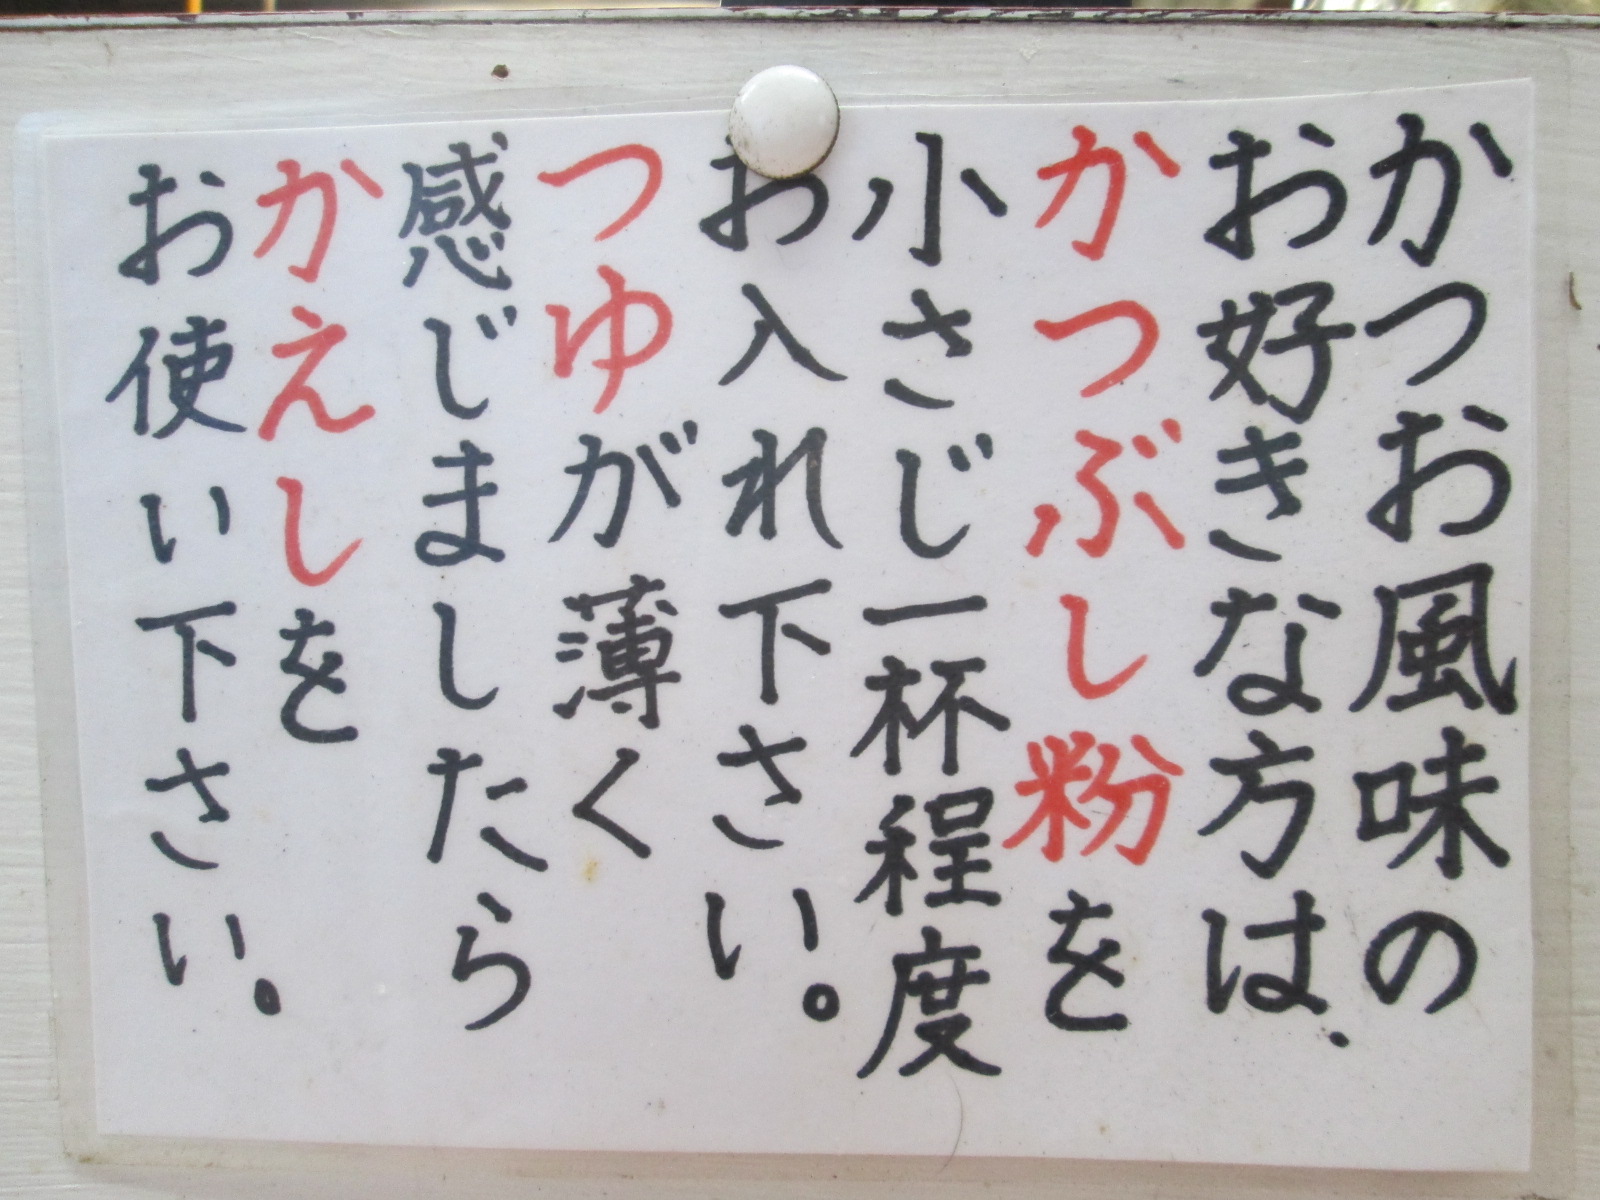 かつお風味の
お好きな方は、
かつぶし粉を
小さじ一杯程度
お入れ下さい。
つゆが薄く
感じましたら
かえしを
お使い下さい。